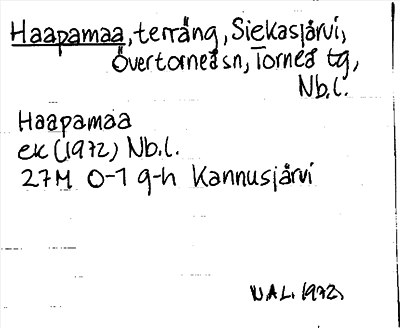 Haapamaa, terräng, Siekasjärvi,
Övertorneå sn, Torneå tg,
Nb.l.
Haapamaa
ek (1972) Nb.l.
27M 0-1 g-h Kannusjärvi
NAL. 1972,